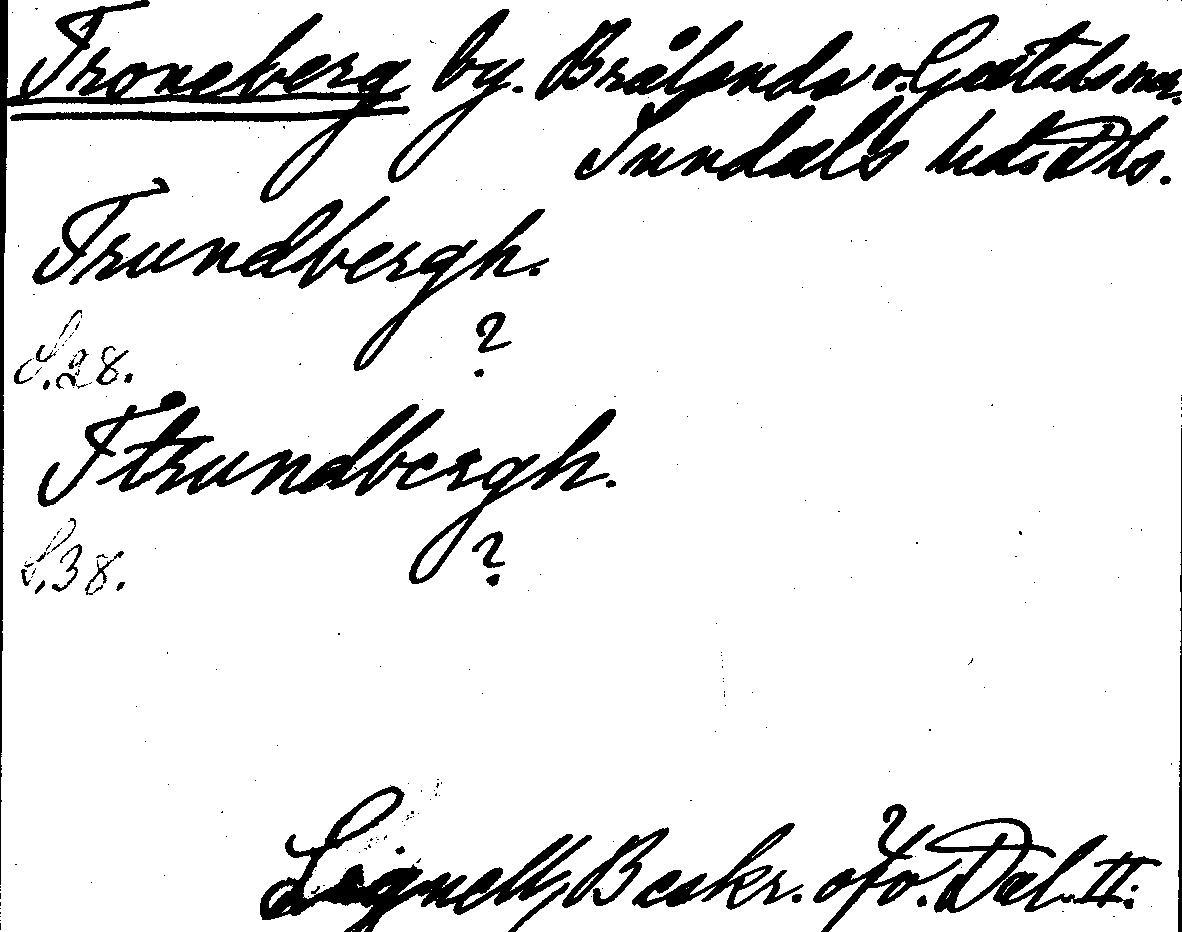 Froneberg by. Brålanda o. Gestads snr.
Sundals hd. Dls.
Frundbergh.
S.28. ?
Ftrundbergh.
S.38. ?
Lignell, Beskr. öfv. Dal. II.